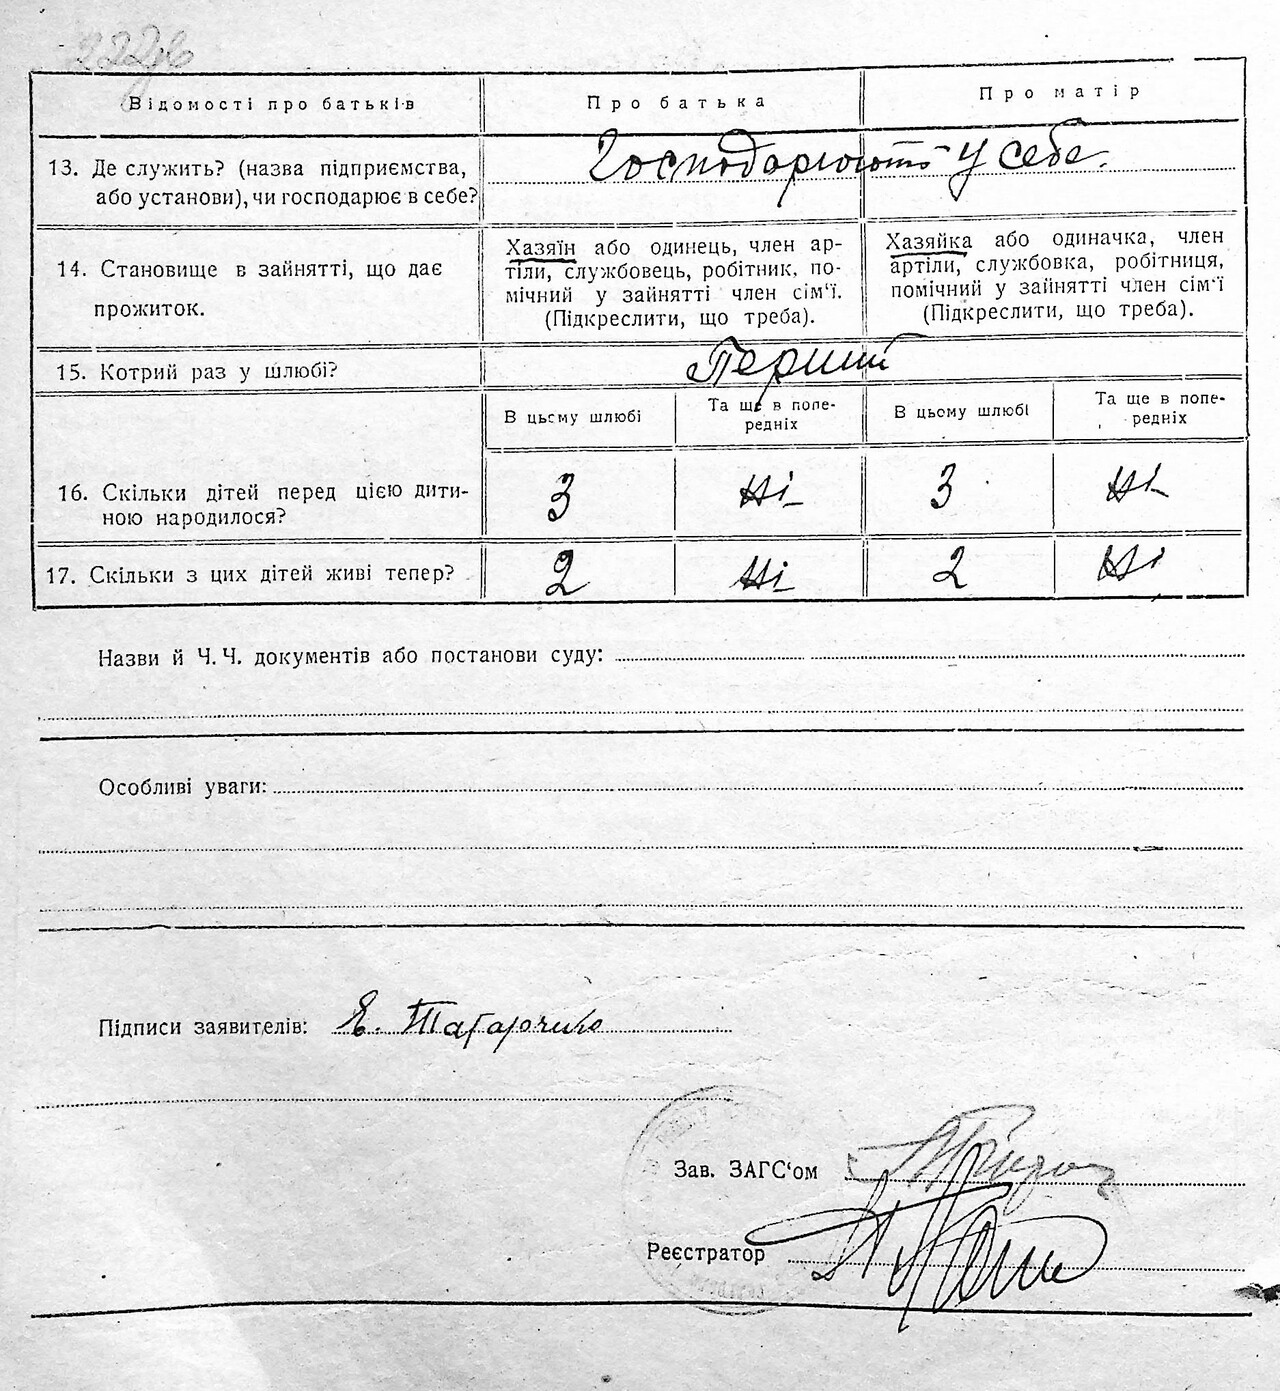 Відомості про батьків
Про батька
Про матір
13. Де служить? (назва підприємства,
або установи), чи господарює в себе?
Господарюють у себе.
14. Становище в зайнятті, що дає
прожиток.
Хазяїн або одинець, член ар-
тіли, службовець, робітник, по-
мічний у зайнятті член сім‘ї.
(Підкреслити, що треба).
Хазяйка або одиначка, член
артіли, службовка, робітниця,
помічний у зайнятті член сім‘ї
(Підкреслити, що треба).
15. Котрий раз у шлюбі?
Перший
В цьому шлюбі
Та ще в попе-
редніх
В цьому шлюбі
Та ще в попе-
редніх
16. Скільки дітей перед цією дити-
ною народилося?
3
Ні
3
Ні
17. Скільки з цих дітей живі тепер?
2
Ні
2
Ні
Назви й Ч. Ч. документів або постанови суду:
Особливі уваги:
Підписи заявителів:
Зав. ЗАГС‘ом
Реєстратор